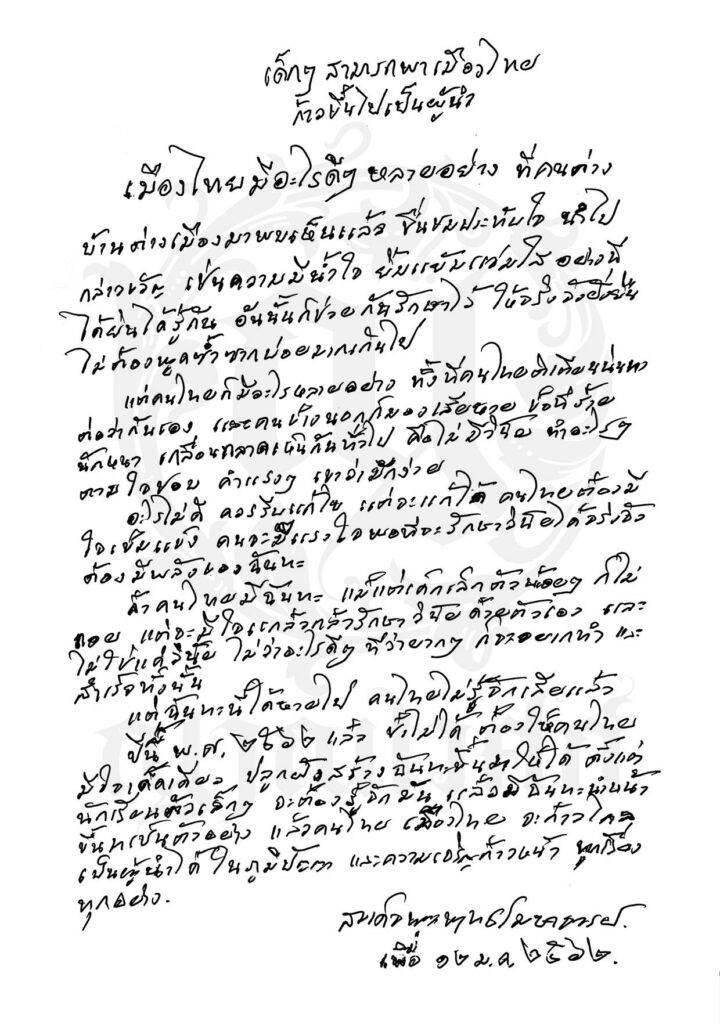 เด็กๆ สามารถพาเมืองไทย
ก้าวขึ้นไปเป็นผู้นำ
เมืองไทยมีอะไรดีๆ หลายอย่าง ที่คนต่าง
บ้านต่างเมืองมาพบเห็นแล้ว ชื่นชมประทับใจ นำไป
กล่าวขวัญ เช่นความมีน้ำใจ ยิ้มแย้มแจ่มใส อย่างนี้
ได้ยินได้รู้กัน อันนั้นก็ช่วยกันรักษาไว้ ให้จริงจังยั่งยืน
ไม่ต้องพูดซ้ำซากบ่อยมากเกินไป
แต่คนไทยก็มีอะไรหลายอย่าง ทั้งที่คนไทยติเตียนนินทา
ต่อว่ากันเอง และคนข้างนอกก็มองเสียหาย ข้อที่ร้าย
นักหนา เกลื่อนกลาดเห็นกันทั่วไป คือไม่มีวินัย ทำอะไรๆ
ตามใจชอบ คำแรงๆ เขาว่ามักง่าย
อะไรไม่ดี ควรรีบแก้ไข แต่จะแก้ได้ คนไทยต้องมี
ใจเข้มแข็ง คนจะมีแรงใจพอที่จะรักษาวินัยได้จริงจัง
ต้องมีพลังของฉันทะ
ถ้าคนไทยมีฉันทะ แม้แต่เด็กเล็กตัวน้อยๆ ก็ไม่
ถอย แต่จะมีใจแกล้วกล้ารักษาวินัยด้วยตัวเอง และ
ไม่ใช่แค่วินัย ไม่ว่าอะไรดีๆ ที่ว่ายากๆ ก็จะอยากทำ และ
สำเร็จทั้งนั้น
แต่ฉันทะนี้ได้หายไป คนไทยไม่รู้จักเสียแล้ว
ปีนี้ พ.ศ. ๒๕๖๒ แล้ว ช้าไม่ได้ ต้องให้คนไทย
มีใจเด็ดเดี่ยว ปลูกฝังสร้างฉันทะขึ้นมาให้ได้ ตั้งแต่
นักเรียนตัวเล็กๆ จะต้องรู้จักมัน แล้วมีฉันทะนำหน้า
ขึ้นมาเป็นตัวอย่าง แล้วคนไทย เมืองไทย จะก้าวไกล
เป็นผู้นำได้ ในภูมิปัญญา และความเจริญก้าวหน้า ทุกเรื่อง
ทุกอย่าง.
สมเด็จพระพุทธโฆษาจารย์.
เพื่อ ๑๒ ม.ค. ๒๕๖๒.